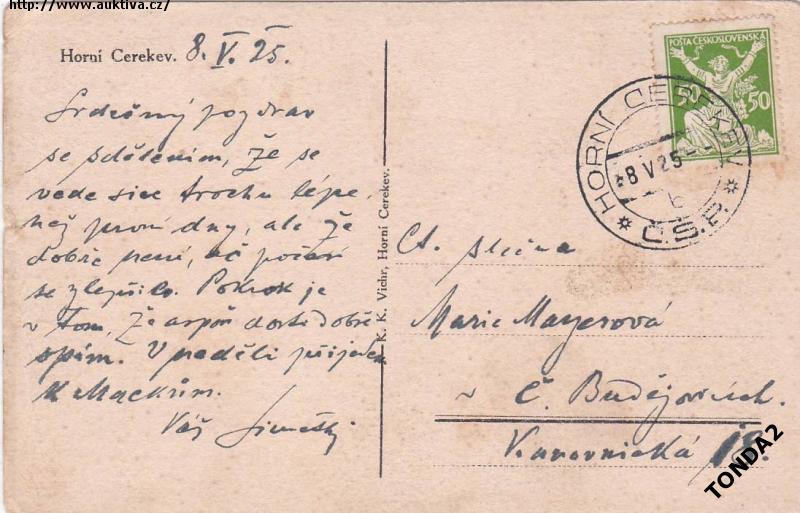 http://www.auktiva.cz/
Horní Cerekev. 8. V. 25.
Srdečný pozdrav
se sdělením, že se
vede sice trochu lépe
než první dny, ale že
dobře není, ač počasí
se zlepšilo. Pokrok je
v tom, že aspoň dosti dobře
spím. V neděli přijedu
k Mackům.
Váš
K. K. Vichr, Horní Cerekev.
POŠTA ČESKOSLOVENSKÁ
50 50
HORNÍ CEREKEV
8 V 25
b
Č.S.R.
Ct. slečna
Marie Mayerová
v Č. Budějovicích.
Kanovnická 18.
TONDA2